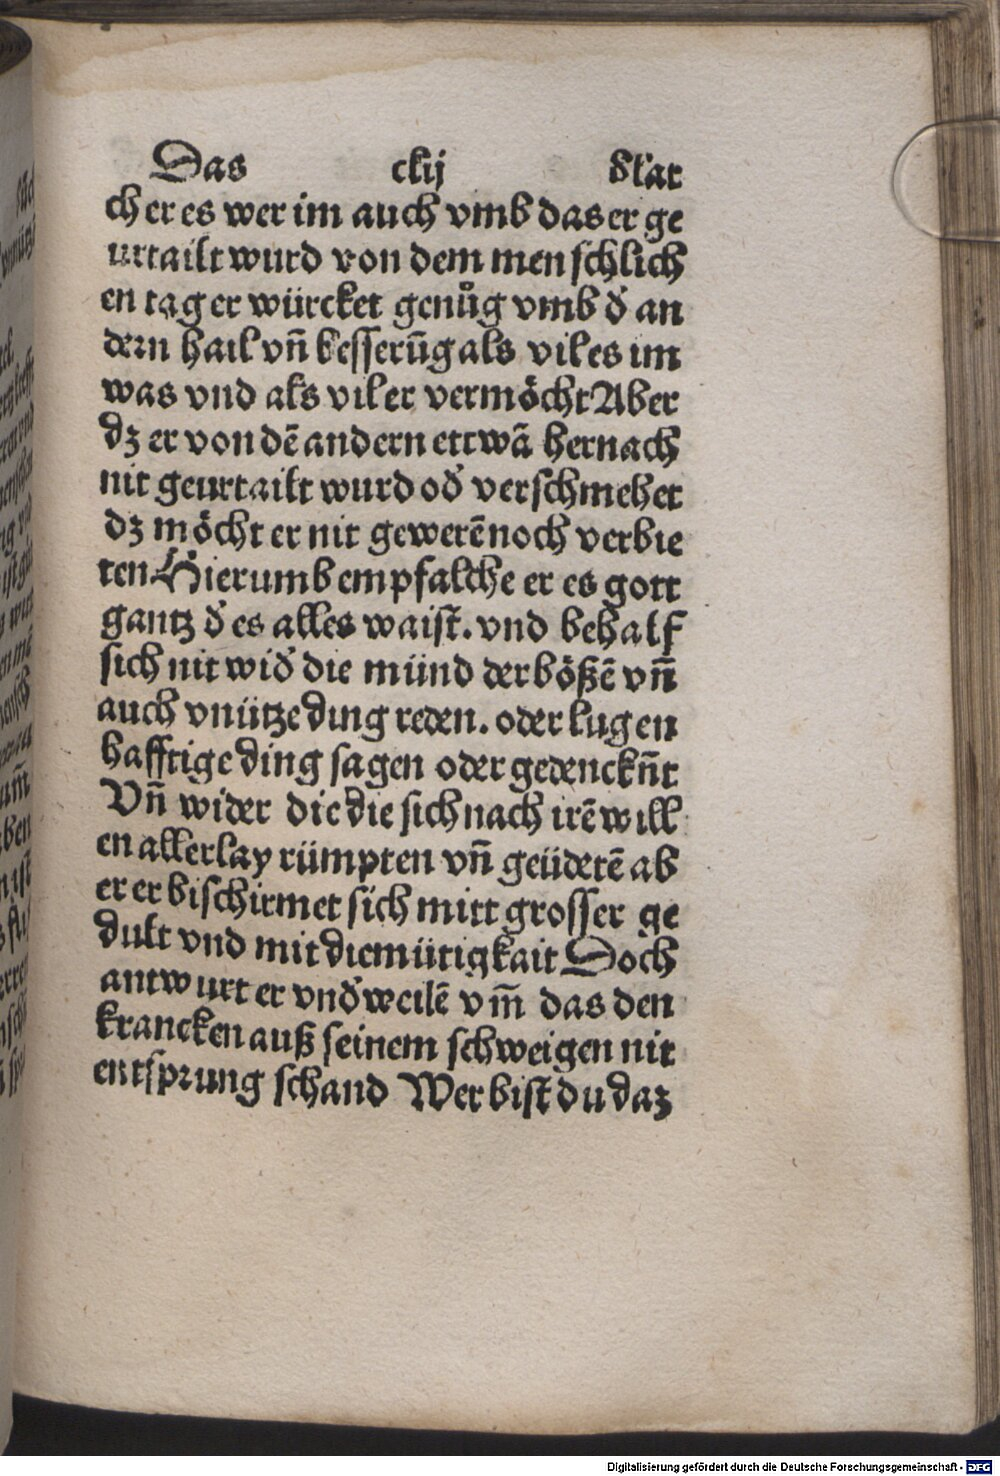 Das clij blat
ch er es wer im auch vmb das er ge
urtailt wurd von dem menschlich
en tag er würcket genůg vmb d̕ an
dern hail vn̄ besserūg als vil es im
was vnd als vil er vermöcht Aber
dz er von dē andern ettwā hernach
nit geurtailt wurd od̕ verschmehet
dz möcht er nit gewerē noch verbie
ten Hierumb empfalche er es gott
gantz d̕ es alles waist. vnd behalf
sich nit wid̕ die münd der bößē vn̄
auch vnütze ding reden. oder lugen
hafftige ding sagen oder gedenckn̄t
Vn̄ wider die die sich nach irē will
en allerlay rümpten vn̄ geüderē ab
er er bischirmet sich mitt grosser ge
dult vnd mit diemütigkait Doch
antwurt er vnd̕weilē vm̄ das den
krancken auß seinem schweigen nit
entsprung schand Wer bist du daz
Digitalisierung gefördert durch die Deutsche Forschungsgemeinschaft - DFG